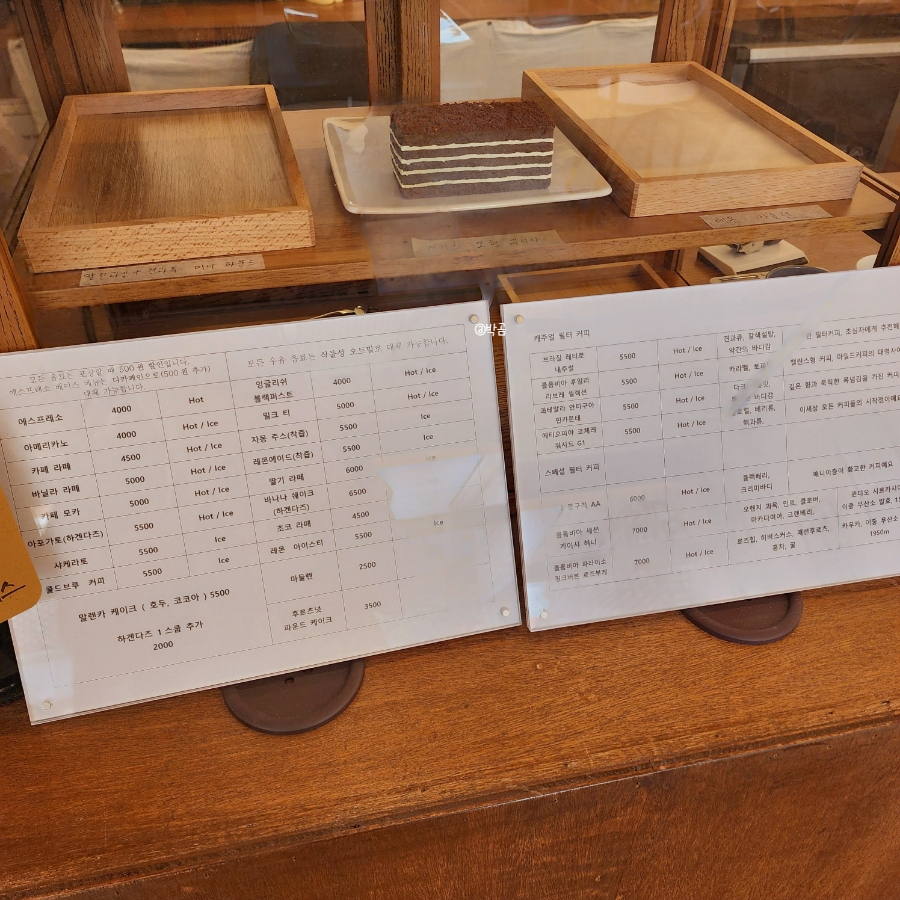 @박곰
모든 음료는 포장할 때 500원 할인입니다.
에스프레소 베이스 메뉴는 디카페인으로(500원 추가)
대체 가능합니다.
모든 우유 음료는 식물성 오트밀로 대체 가능합니다.
에스프레소 4000 Hot
아메리카노 4000 Hot / Ice
카페 라떼 4500 Hot / Ice
바닐라 라떼 5000 Hot / Ice
카페 모카 5000 Hot / Ice
아포가토(하겐다즈) 5500
샤케라토 5500 Ice
콜드브루 커피 5500 Hot / Ice
말렌카 케이크 ( 호두, 코코아 ) 5500
하겐다즈 1스쿱 추가
2000
잉글리쉬
블랙퍼스트 4000 Hot / Ice
밀크 티 5000 Hot / Ice
자몽 주스(착즙) 5500 Ice
레몬에이드(착즙) 5500 Ice
딸기 라떼 6000
바나나 쉐이크
(하겐다즈) 6500
초코 라떼 4500
레몬 아이스티 5500 Ice
마들렌 2500
후르츠넛
파운드 케이크 3500
캐주얼 필터 커피
브라질 레티로
내추럴 5500 Hot / Ice 견과류, 갈색설탕,
약간의 바디감
필터커피, 초심자에게 추천해
콜롬비아 후일라
리브레 셀렉션 5500 Hot / Ice 카라멜,
밸런스형 커피, 마일드커피의 대명사
과테말라 안티구아
5500 Hot / Ice 다크
바디감
깊은 향과 묵직한 볼륨감을 가진 커피
에티오피아 코체레
워시드 G1 5500 Hot / Ice 베리류,
핵과류,
이세상 모든 커피들의 시작점이에요
스페셜 필터 커피
AA 6000 Hot / Ice 블랙베리,
크리미바디
매니아층이 확고한 커피예요
콜롬비아
게이샤 허니 7000 Hot / Ice 오렌지 과육, 민트, 클로버,
마카다미아, 크랜베리,
이중 무산소 발효,
콜롬비아 파라이소
핑크버본 로즈부케 7000 Hot / Ice 로즈힙, 히비스커스, 패션후르츠,
홍차, 꿀
카우카, 이중 무산소
1950m